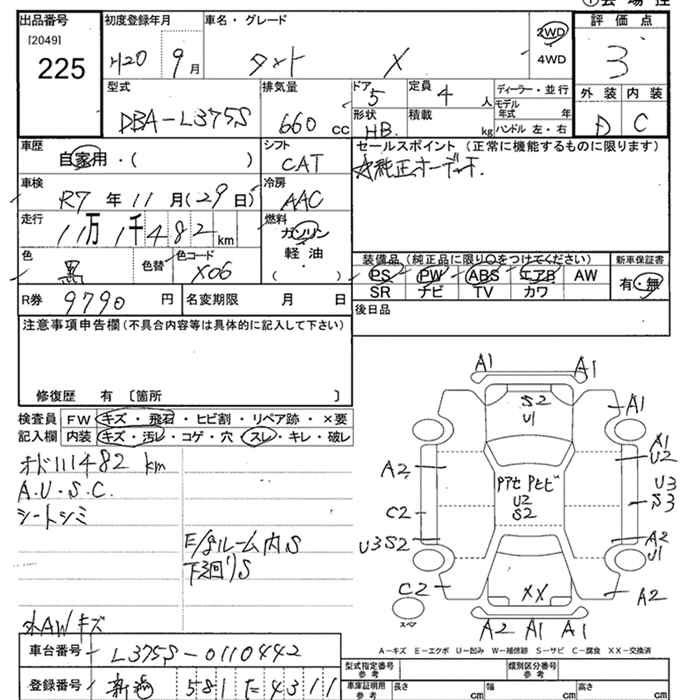 出品番号
[2049]
225
初度登録年月
H20 9月
車名・グレード
タント X
2WD
4WD
評価点
3
外装 内装
D C
型式
DBA-L375S
排気量
660 cc
ドア
5
形状
HB
定員
4 人
積載
kg
ディーラー・並行
モデル年式 年
ハンドル 左・右
車歴
自家用・( )
シフト
CAT
セールスポイント (正常に機能するものに限ります)
☆純正オーディオ.
車検
R7 年 11 月 (29日)
冷房
AAC
走行
11万 1千 482 km
燃料
ガソリン
軽油
( ・ )
色
黒
色替
色コード
X06
装備品 (純正品に限り○をつけてください)
PS PW ABS エアB AW
SR ナビ TV カワ
新車保証書
有・無
R券 9790 円
名変期限 月 日
後日品
注意事項申告欄 (不具合内容等は具体的に記入して下さい)
修復歴 有 〔箇所 〕
検査員 FW キズ・飛石・ヒビ割・リペア跡・×要
記入欄 内装 キズ・汚レ・コゲ・穴・スレ・キレ・破レ
オド111482 km
A.U.S.C.
シートシミ
E/gルーム内S
下廻りS
外AWキズ
A1 A1
S2
U1
A1
A1
U2
A2
Pアセ Pセビ
U2
S2
U3
S3
C2
U3S2
A2
U1
C2
XX
A2
スペア
A2 A1 A1
A-キズ E-エクボ U-凹み W-補修跡 S-サビ C-腐食 XX-交換済
車台番号 L375S-0110442
登録番号 新潟 581 た 4311
型式指定番号
参考
類別区分番号
参考
車庫証明用
参考
長さ cm
幅 cm
高さ cm